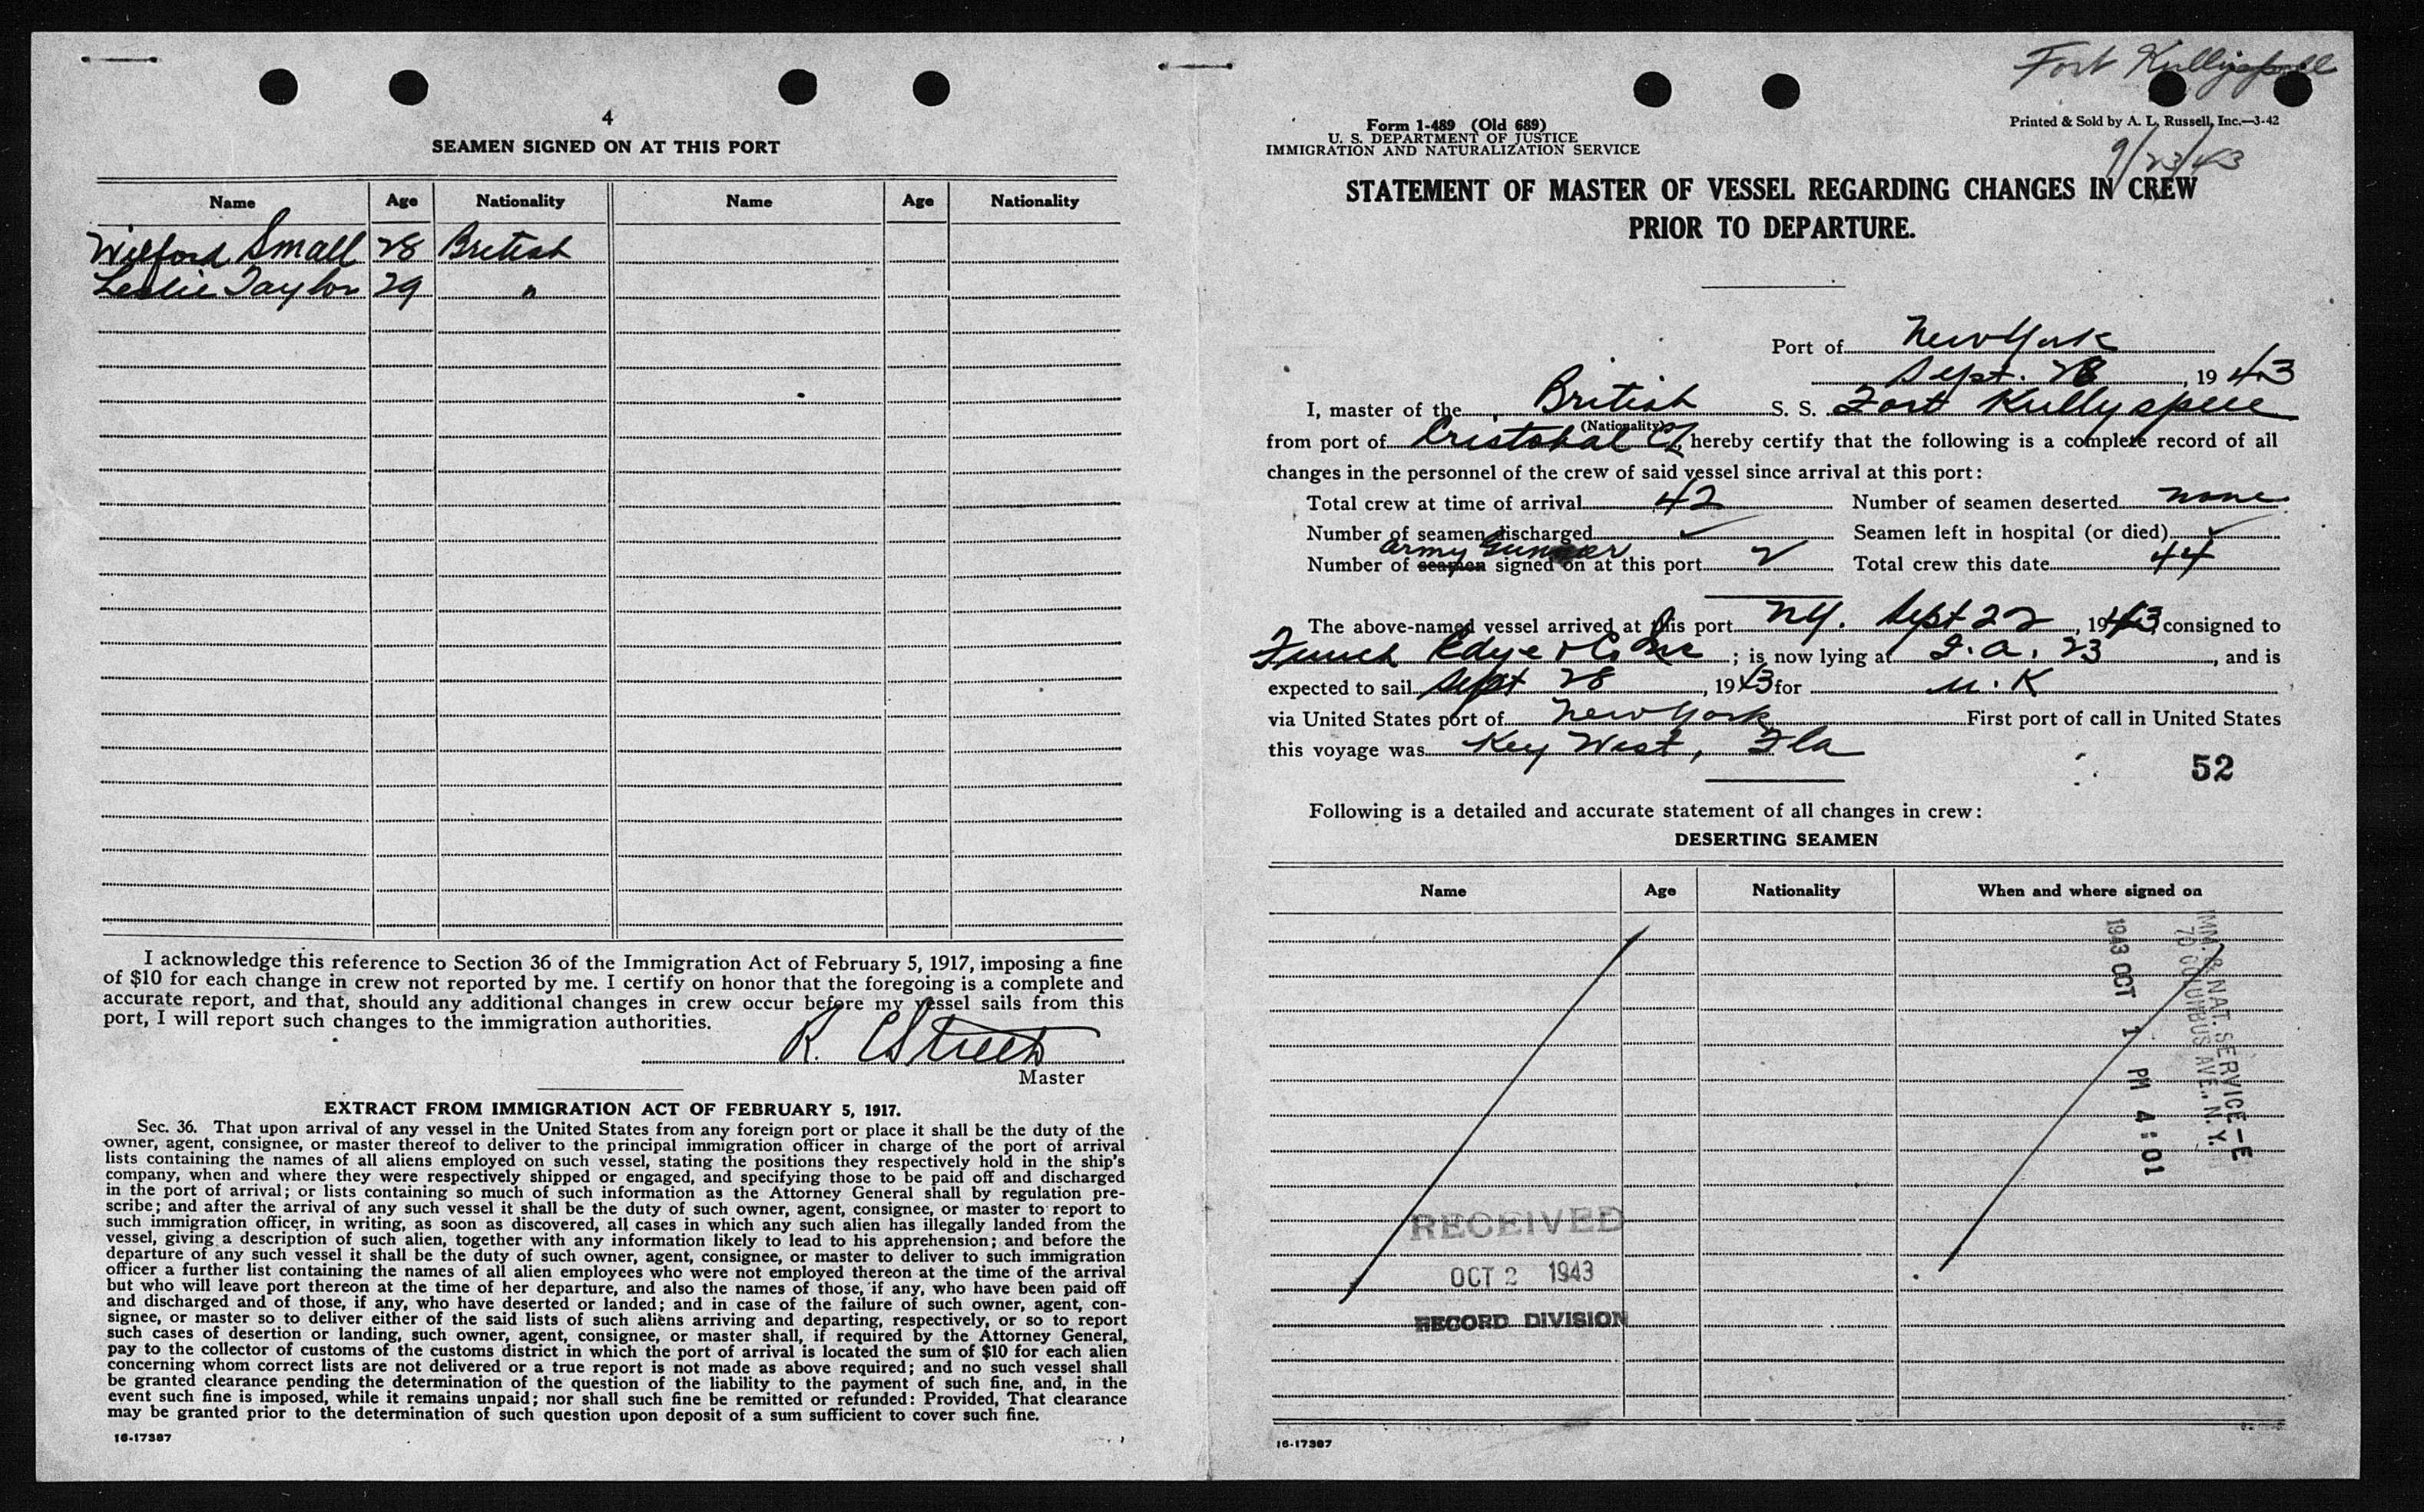 4
SEAMEN SIGNED ON AT THIS PORT
Name Age Nationality Name Age Nationality
Wilford Small 28 British
Leslie Taylor 29 "
I acknowledge this reference to Section 36 of the Immigration Act of February 5, 1917, imposing a fine
of $10 for each change in crew not reported by me. I certify on honor that the foregoing is a complete and
accurate report, and that, should any additional changes in crew occur before my vessel sails from this
port, I will report such changes to the immigration authorities.
R. C Street
Master
EXTRACT FROM IMMIGRATION ACT OF FEBRUARY 5, 1917.
Sec. 36. That upon arrival of any vessel in the United States from any foreign port or place it shall be the duty of the
owner, agent, consignee, or master thereof to deliver to the principal immigration officer in charge of the port of arrival
lists containing the names of all aliens employed on such vessel, stating the positions they respectively hold in the ship's
company, when and where they were respectively shipped or engaged, and specifying those to be paid off and discharged
in the port of arrival; or lists containing so much of such information as the Attorney General shall by regulation pre-
scribe; and after the arrival of any such vessel it shall be the duty of such owner, agent, consignee, or master to report to
such immigration officer, in writing, as soon as discovered, all cases in which any such alien has illegally landed from the
vessel, giving a description of such alien, together with any information likely to lead to his apprehension; and before the
departure of any such vessel it shall be the duty of such owner, agent, consignee, or master to deliver to such immigration
officer a further list containing the names of all alien employees who were not employed thereon at the time of the arrival
but who will leave port thereon at the time of her departure, and also the names of those, if any, who have been paid off
and discharged and of those, if any, who have deserted or landed; and in case of the failure of such owner, agent, con-
signee, or master so to deliver either of the said lists of such aliens arriving and departing, respectively, or so to report
such cases of desertion or landing, such owner, agent, consignee, or master shall, if required by the Attorney General,
pay to the collector of customs of the customs district in which the port of arrival is located the sum of $10 for each alien
concerning whom correct lists are not delivered or a true report is not made as above required; and no such vessel shall
be granted clearance pending the determination of the question of the liability to the payment of such fine, and, in the
event such fine is imposed, while it remains unpaid; nor shall such fine be remitted or refunded: Provided, That clearance
may be granted prior to the determination of such question upon deposit of a sum sufficient to cover such fine.
16-17387
Fort
Form 1-489 (Old 689)
U. S. DEPARTMENT OF JUSTICE
IMMIGRATION AND NATURALIZATION SERVICE
Printed & Sold by A. L. Russell, Inc.—3-42
9/23/43
STATEMENT OF MASTER OF VESSEL REGARDING CHANGES IN CREW
PRIOR TO DEPARTURE.
Port of New York
Sept. 28, 1943
I, master of the British S. S. Fort Kullyspell
(Nationality)
from port of Cristobal CZ, hereby certify that the following is a complete record of all
changes in the personnel of the crew of said vessel since arrival at this port:
Total crew at time of arrival 42 Number of seamen deserted none
Number of seamen discharged ✓ Seamen left in hospital (or died) ✓
army Gunner
Number of seamen signed on at this port 2 Total crew this date 44
The above-named vessel arrived at this port N.Y. Sept 22, 1943, consigned to
Funch Edye & Co Inc ; is now lying at 23, and is
expected to sail Sept 28, 1943 for U.K
via United States port of New York First port of call in United States
this voyage was Key West, Fla
52
Following is a detailed and accurate statement of all changes in crew:
DESERTING SEAMEN
Name Age Nationality When and where signed on
IMM. & NAT. SERVICE-E
70 COLUMBUS AVE., N. Y.
1943 OCT 1 PM 4:01
RECEIVED
OCT 2 1943
RECORD DIVISION
16-17387